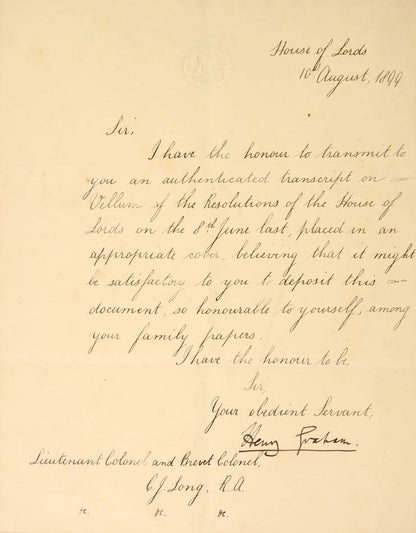 House of Lords
10th August, 1899
Sir,
I have the honour to transmit to
you an authenticated transcript on
Vellum of the Resolutions of the House of
Lords on the 8th June last, placed in an
appropriate cover, believing that it might
be satisfactory to you to deposit this
document, so honourable to yourself, among
your family papers.
I have the honour to be,
Sir,
Your obedient Servant,
Henry Graham.
Lieutenant Colonel and Brevet Colonel,
C.J. Long, R.A.
&c. &c. &c.